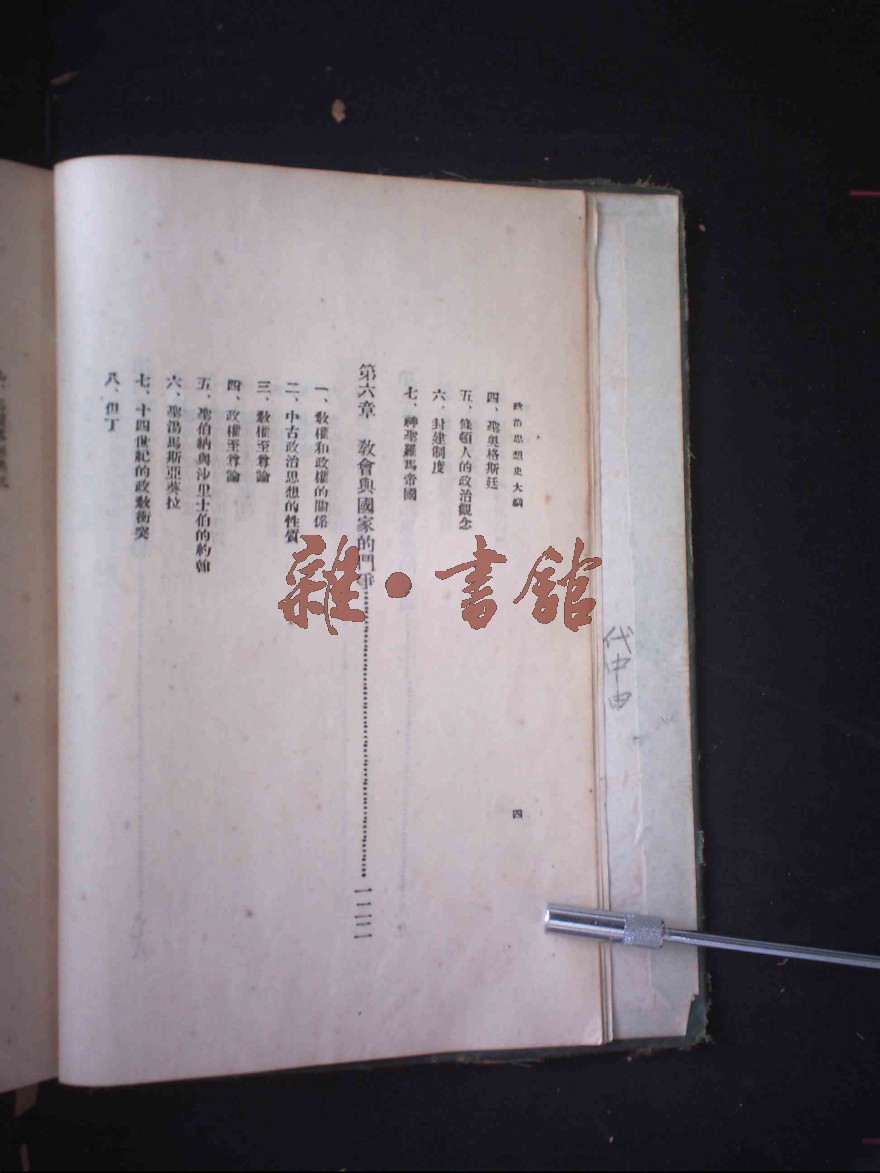 政治思想史大綱
四
四、聖奧格斯廷
五、條頓人的政治觀念
六、封建制度
七、神聖羅馬帝國
第六章 教會與國家的鬥爭
一、教權和政權的關係
二、中古政治思想的性質
三、教權至尊論
四、政權至尊論
五、聖伯納與沙里士伯的約翰
六、聖湯馬斯亞葵拉
七、十四世紀的政教衝突
八、但丁
雜·書館